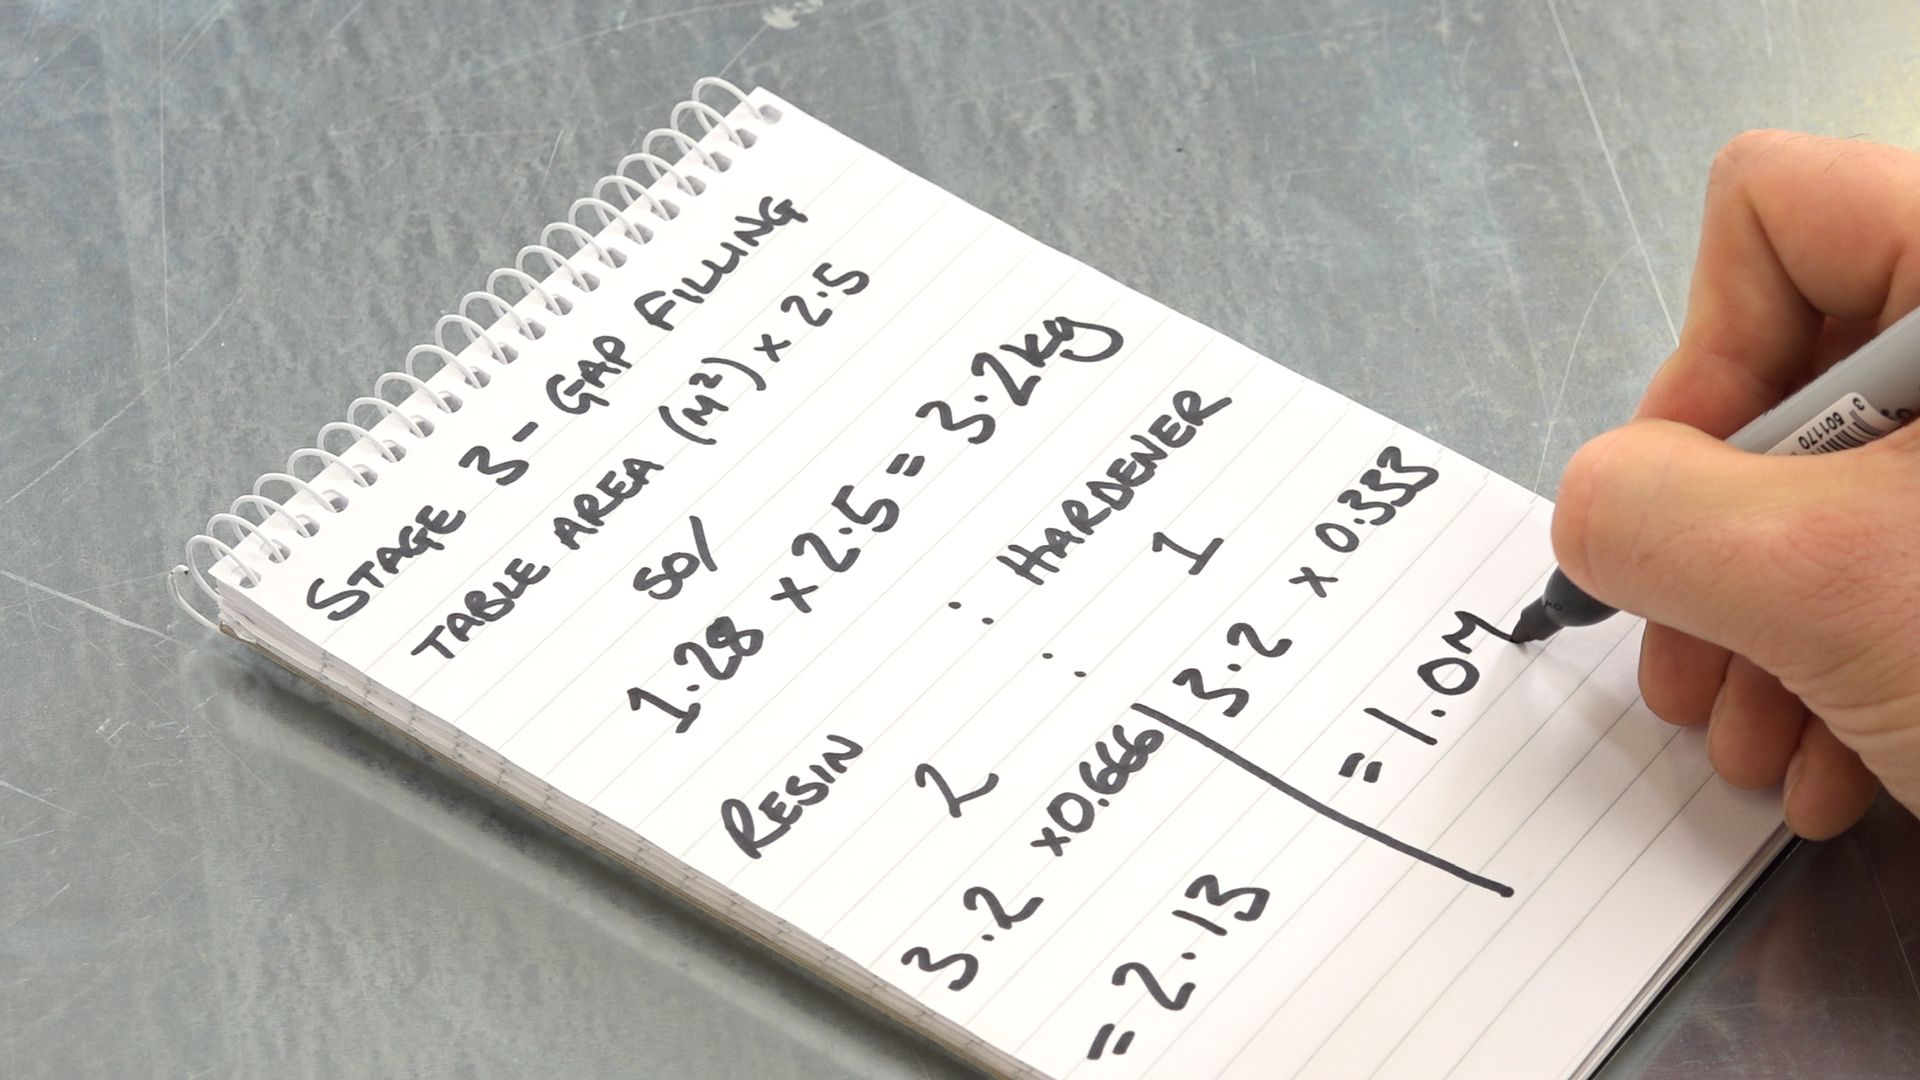 STAGE 3 - GAP FILLING
TABLE AREA (M²) × 2.5
SO/
1.28 × 2.5 = 3.2kg
RESIN : HARDENER
2 : 1
3.2 ×0.666 3.2 × 0.333
= 2.13 = 1.0
3 501170